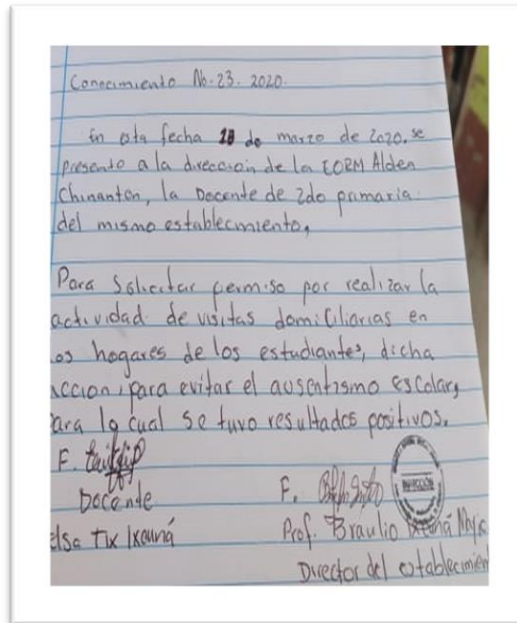 Conocimiento No. 23. 2020.
En esta fecha 10 de marzo de 2020. se
presento a la direccion de la EORM Aldea
Chinanton, la Docente de 2do primaria
del mismo establecimiento,
Para Solicitar permiso por realizar la
actividad de visitas domiciliarias en
os hogares de los estudiantes, dicha
accion, para evitar el ausentismo escolar,
ara lo cual se tuvo resultados positivos.
F.
Docente
F.
Elsa Tix Ixcuná
Prof. Braulio
DIRECCIÓN
Director del establecimien